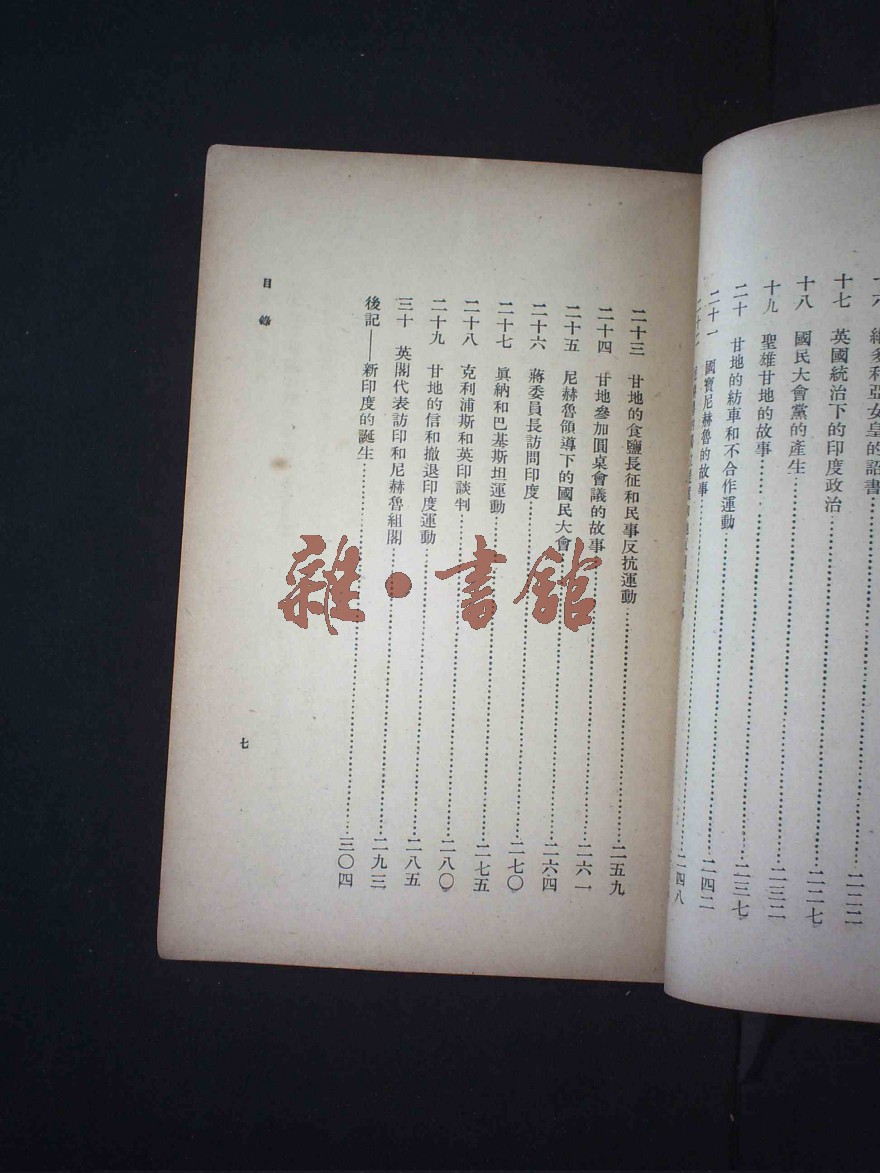 維多利亞女皇的詔書……二二二
十七 英國統治下的印度政治……二二七
十八 國民大會黨的產生……二三二
十九 聖雄甘地的故事……二三七
二十 甘地的紡車和不合作運動……二四二
二十一 國寶尼赫魯的故事……二四八
二十三 甘地的食鹽長征和民事反抗運動……二五九
二十四 甘地參加圓桌會議的故事……二六一
二十五 尼赫魯領導下的國民大會……二六四
二十六 蔣委員長訪問印度……二七〇
二十七 眞納和巴基斯坦運動……二七五
二十八 克利浦斯和英印談判……二八〇
二十九 甘地的信和撤退印度運動……二八五
三十 英閣代表訪印和尼赫魯組閣……二九三
後記——新印度的誕生……三〇四
目錄
七
雜·書館